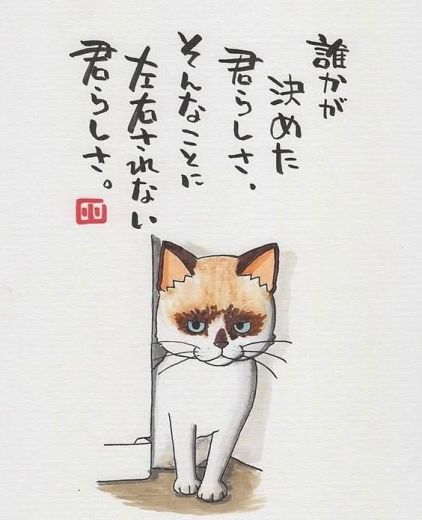 誰かが
決めた
君らしさ、
そんなことに
左右されない
君らしさ。